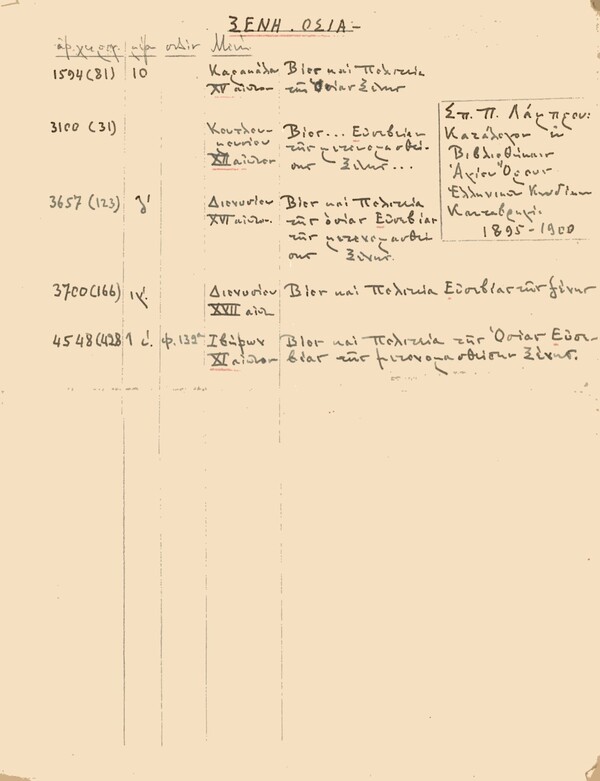 ΞΕΝΗ. ΟΣΙΑ-
ἀρ. χειρογ. Μονή
1594(81) 10 Καρακάλου Βίος καὶ Πολιτεία
XV αἰῶνος τῆς Ὁσίας Ξένης
3100 (31) Κουτλου- Βίος... Εὐσεβείας
μουσίου τῆς μετονομασθεί-
XII αἰῶνος σης Ξένης...
3657 (123) γ' Διονυσίου Βίος καὶ Πολιτεία
XVI αἰῶνος. τῆς ὁσίας Εὐσεβίας
τῆς μετονομασθεί
σης Ξένης.
3700(166) Διονυσίου Βίος καὶ Πολιτεία Εὐσεβίας τῆς ξένης
XVII αἰῶν.
4548(428 φ. 139α Ἰβήρων Βίος καὶ Πολιτεία τῆς Ὁσίας Εὐσε-
XI αἰῶνος βίας τῆς μετονομασθείσης Ξένης.
Σπ. Π. Λάμπρου:
Κατάλογος τῶν
Βιβλιοθήκαις
Ἁγίου Ὄρους
Ἑλληνικῶν Κωδίκων
Κανταβριγί.
1895-1900